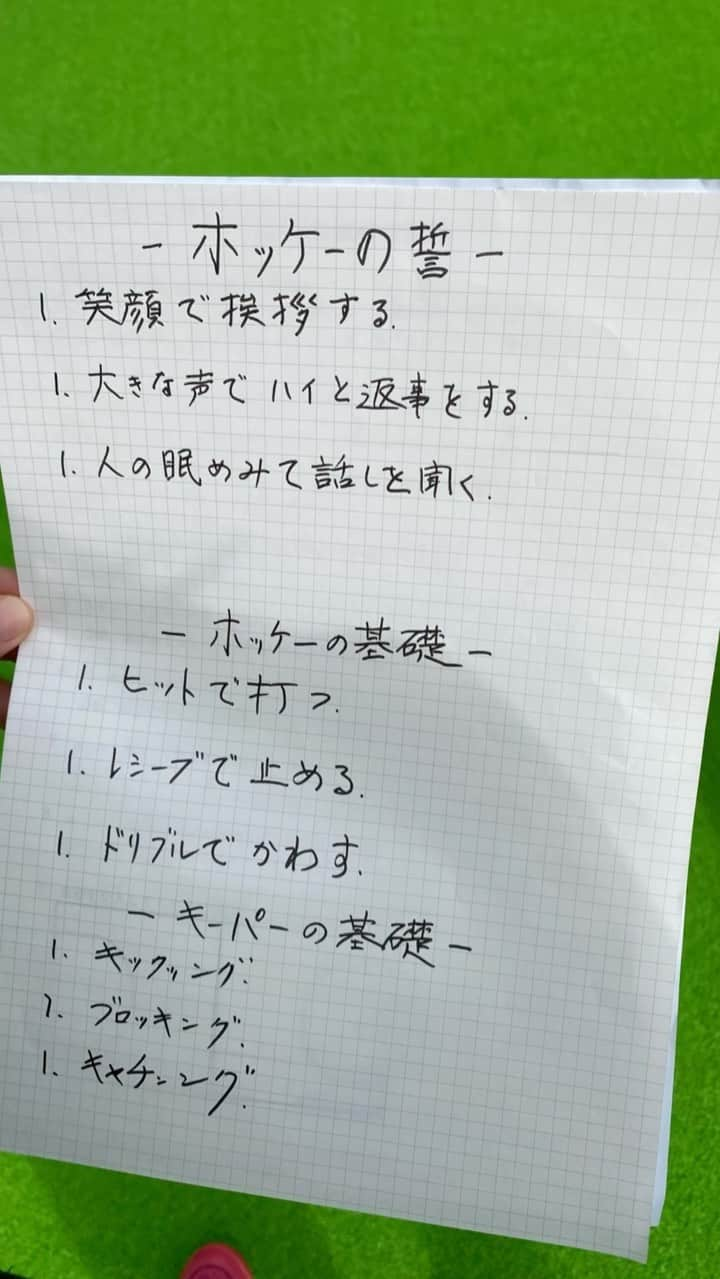 - ホッケーの誓 -
1. 笑顔で挨拶する.
1. 大きな声でハイと返事をする.
1. 人の眠めみて話しを聞く.
- ホッケーの基礎 -
1. ヒットで打つ.
1. レシーブで止める.
1. ドリブルでかわす.
- キーパーの基礎 -
1. キックッング.
1. ブロッキング.
1. キャチング.